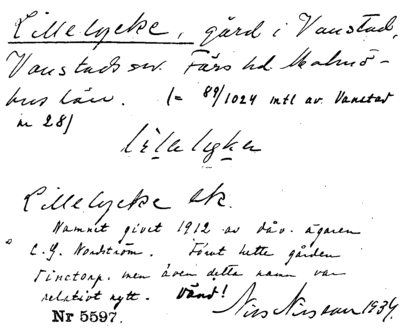 Lillelycke, gård i Vanstad,
Vanstads sn. Färs hd Malmö-
hus län. (= 89/1024 mtl av Vanstad
nr 28)
Lillelycke sk.
Namnet givet 1912 av dåv. ägaren
C. G. Nordström. Förut hette gården
men även detta namn var
relativt nytt. Vänd!
Nils Nilsson 1934.
Nr 5597.